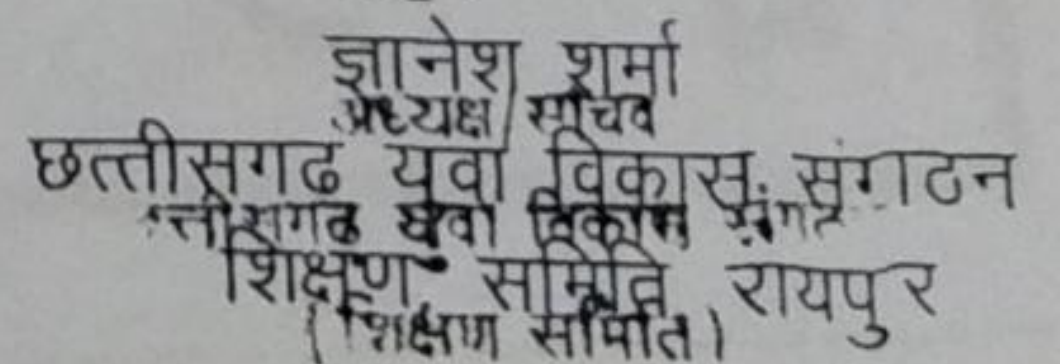 ज्ञानेश शर्मा
अध्यक्ष/सचिव
छत्तीसगढ युवा विकास संगठन
त्तीसगढ युवा विकास
शिक्षण समिति रायपुर
(शिक्षण समिति)